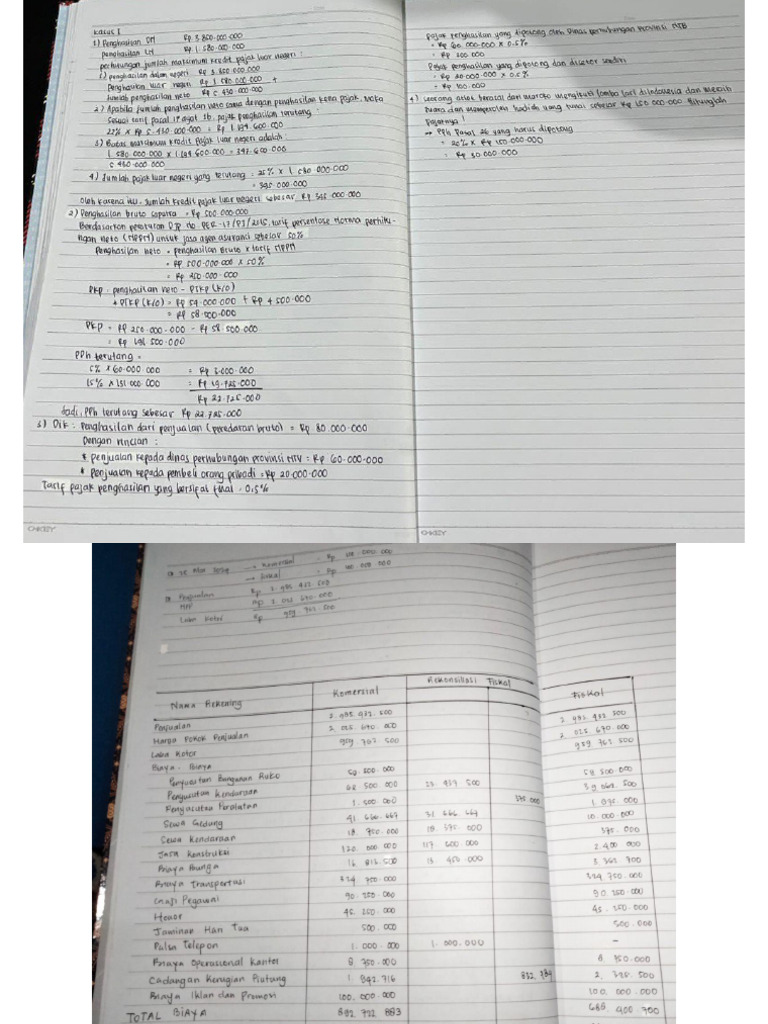 Kasus I
1) Penghasilan DM Rp 3.850.000.000
penghasilan LN Rp 1.580.000.000
perhitungan jumlah maksimum kredit pajak luar negeri :
1) penghasilan dalam negeri Rp 3.850.000.000
penghasilan luar negeri Rp 1.580.000.000 +
Jumlah penghasilan neto Rp 5.430.000.000
2) Apabila jumlah penghasilan neto sama dengan penghasilan kena pajak, maka
sesuai tarif pasal 17 ayat 1b, pajak penghasilan terutang :
22% x Rp 5.430.000.000 = Rp 1.194.600.000
3) Batas maksimum kredit pajak luar negeri adalah :
1.580.000.000 x 1.194.600.000 = 347.600.000
5.430.000.000
4) Jumlah pajak luar negeri yang terutang : 25% x 1.580.000.000
= 395.000.000
oleh karena itu, jumlah kredit pajak luar negeri sebesar Rp 000.000
2) Penghasilan bruto saputra = Rp 500.000.000
Berdasarkan peraturan DJP no. PER-17/PJ/2015, tarif persentase norma perhitu-
ngan neto untuk jasa agen asuransi sebesar 50%
Penghasilan neto = penghasilan Bruto x tarif
= Rp 500.000.000 x 50%
= Rp 250.000.000
PKP = penghasilan neto - PTKP (K/0)
PTKP (K/0) = Rp 54.000.000 + Rp 4.500.000
= Rp 58.000.000
PKP = Rp 250.000.000 - Rp 58.500.000
= Rp 500.000
PPh terutang =
5% x 60.000.000 = Rp 3.000.000
15% x 131.000.000 = Rp 19.725.000
Rp 22.725.000
Jadi, PPh terutang sebesar Rp 22.725.000
3) Dik : Penghasilan dari penjualan (peredaran bruto) = Rp 80.000.000
Dengan rincian :
* penjualan kepada dinas perhubungan provinsi = Rp 60.000.000
* penjualan kepada pembeli orang pribadi = Rp 20.000.000
Tarif pajak penghasilan yang bersifat final = 0,5%
pajak penghasilan yang dipotong oleh Dinas perhubungan provinsi NTB
= Rp 60.000.000 x 0.5%
= Rp 300.000
Pajak penghasilan yang dipotong dan disetor sendiri
= Rp 20.000.000 x 0.5%
= Rp 100.000
4) Seorang atlet berasal dari maroko mengikuti lomba lari di Indonesia dan meraih
juara dan memperoleh hadiah uang tunai sebesar Rp 150.000.000 Hitunglah
pajaknya !
→ PPh Pasal 26 yang harus dipotong
= 20% x Rp 150.000.000
= Rp 30.000.000
→ Komersial = Rp 000.000
→ Fiskal = Rp 000
Penjualan Rp 2.985.432.500
HPP Rp 2.025.670.000
Laba Kotor Rp 959.762.500
Nama Rekening Komersial Rekonsiliasi Fiskal Fiskal
Penjualan 2.985.432.500 2.985.432.500
Harga Pokok Penjualan 2.025.670.000 2.025.670.000
Laba Kotor 959.762.500 959.762.500
Biaya - Biaya
Penyusutan Bangunan Ruko 58.500.000 58.500.000
Penyusutan Kendaraan 500.000 500
Penyusutan Peralatan 1.500.000 000
Sewa Gedung 41.666.667 31.666.667 10.000.000
Sewa Kendaraan 18.750.000 18.375.000 375.000
Jasa Konstruksi 120.000.000 117.600.000 2.400.000
Biaya Bunga 16.812.500 13.450.000 700
Biaya Transportasi 324.750.000 324.750.000
Gaji Pegawai 90.250.000 90.250.000
Honor 45.250.000 45.250.000
Jaminan Hari Tua 500.000 500.000
Pulsa Telepon 1.000.000 1.000.000 -
Biaya Operasional Kantor 8.750.000 8.750.000
Cadangan Kerugian Piutang
Biaya Iklan dan Promosi 100.000.000 100.000.000
TOTAL BIAYA 882.722.883 688.900.700